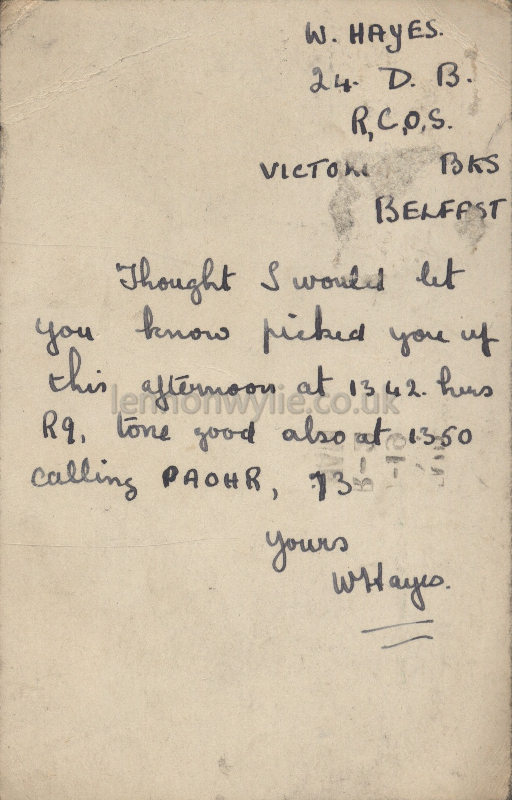 W. HAYES.
24. D. B.
R,C,O,S.
BKS
BELFAST
Thought I would let
you know picked you up
this afternoon at 1342. hurs
lennonwylie.co.uk
R9, tone good also at 1350
calling PAOHR, 73
Yours
WHayes.